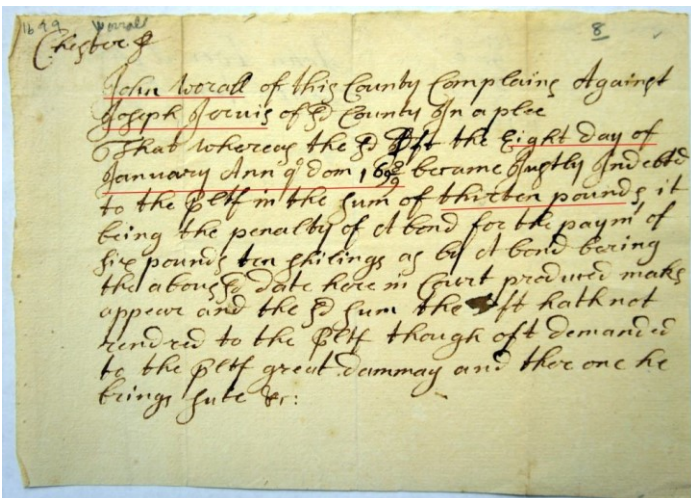 1699 Worrall 8
Chester ss
John Worall of this County Complains Against
Joseph Jervis of sd County In a plee
That whereas the sd Dft the Eight day of
January Anno dom 169 8/9 became Justly Indebted
to the pltf in the sum of thirten pounds it
being the penalty of A bond for the paymt of
six pounds ten shilings as by A bond bering
the above sd date here in Court produced maks
appear and the sd sum the Dft hath not
rendred to the pltf though oft demanded
to the pltf great dammag and ther one he
brings sute &c: